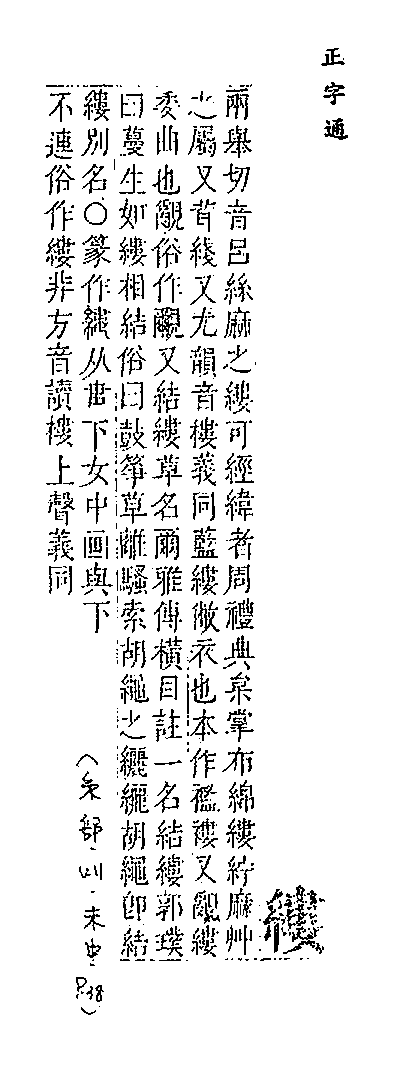 正字通
縷
兩舉切音呂絲麻之縷可經緯者周禮典枲掌布緦縷紵麻艸
之屬又苜綫又尤韻音樓義同藍縷敝衣也本作襤褸又覶縷
委曲也覶俗作覼又結縷草名爾雅傅橫目註一名結縷郭璞
曰蔓生如縷相結俗曰鼓箏草離騷索胡繩之纚纚胡繩即結
縷別名○篆作从毌下女中画與下
不連俗作縷非方音讀樓上聲義同
(糸部·未中·P.48)